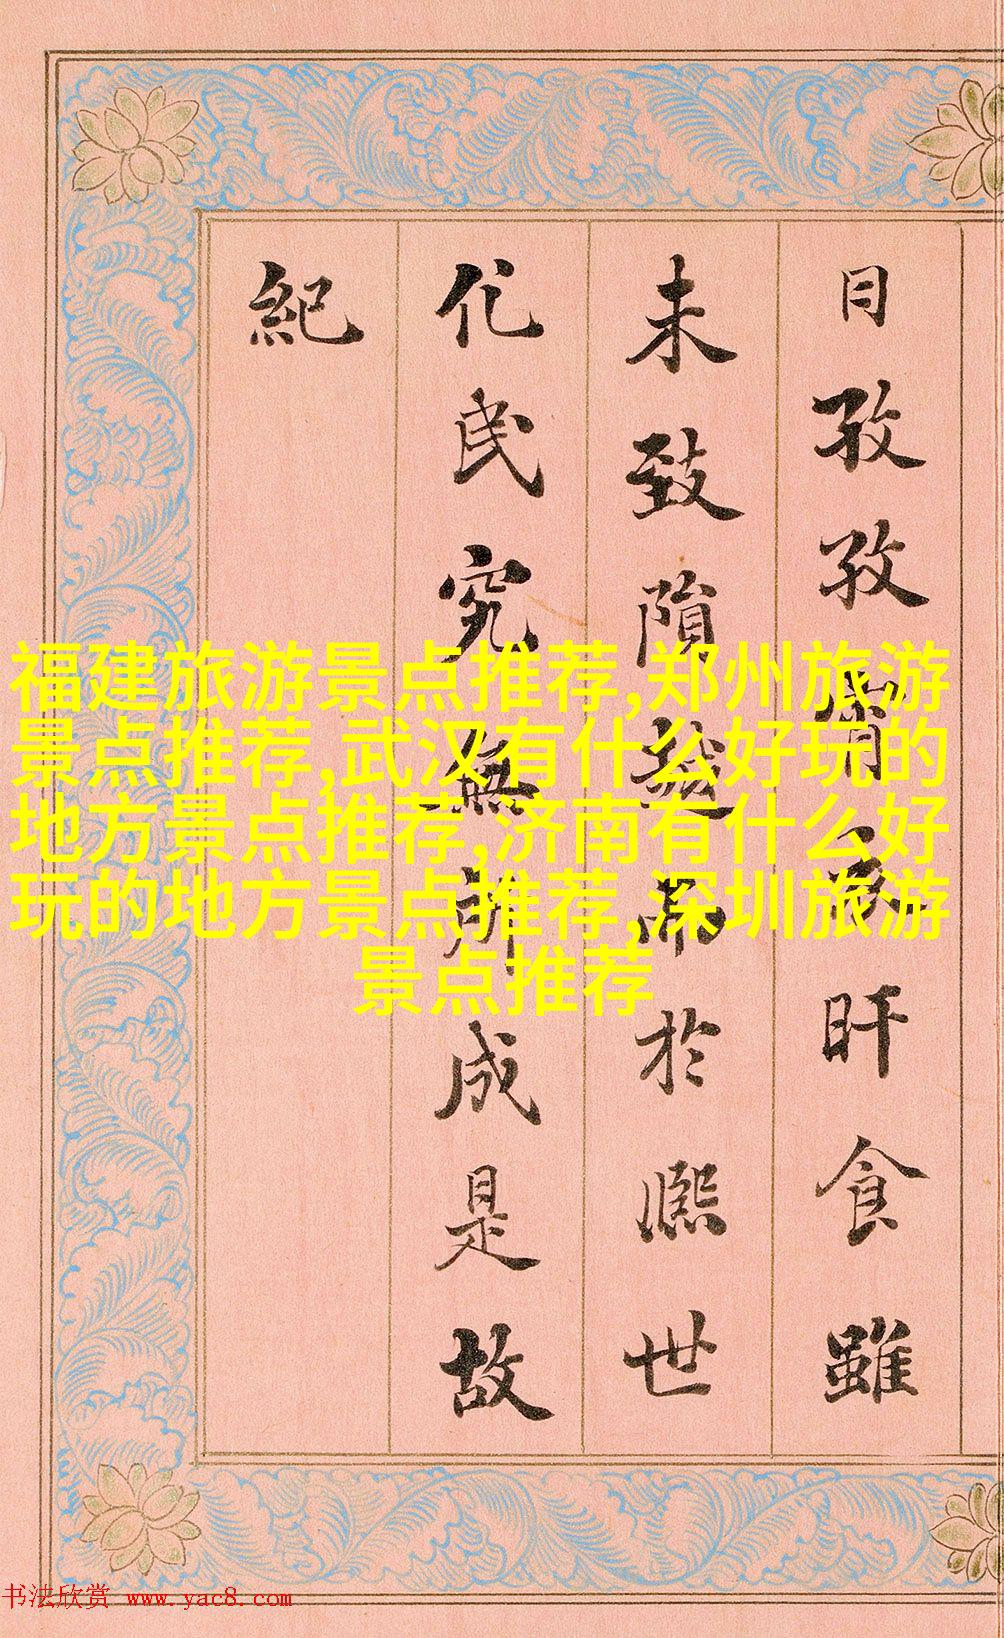 日孜孜宵衣旰食雖
未致隕越而於熙世
化民究無所成是故
紀
福建旅游景点推荐,郑州旅游
景点推荐,武汉有什么好玩的
地方景点推荐,济南有什么好
玩的地方景点推荐,深圳旅游
景点推荐
书法欣赏 www.yac8.com